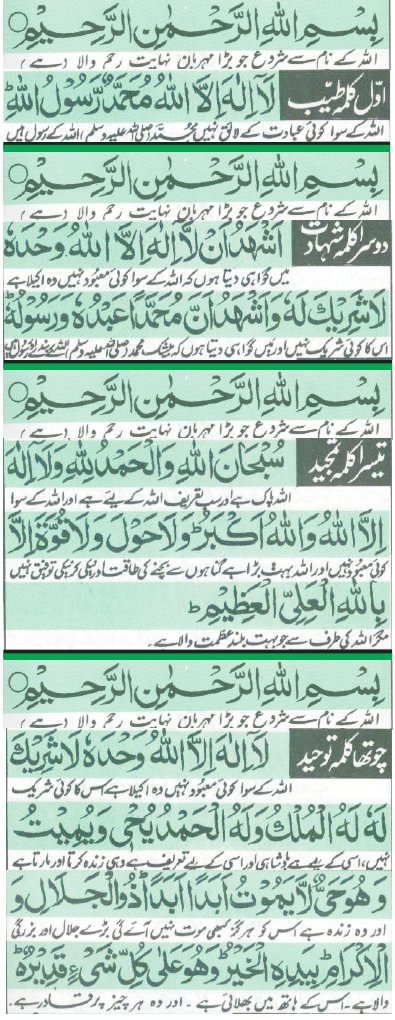 بِسْمِ اللهِ الرَّحْمٰنِ الرَّحِيْمِ
اللہ کے نام سے شروع جو بڑا مہربان نہایت رحم والا (ہے)
اوّل کلمہ طیّب لَآ اِلٰهَ اِلَّا اللهُ مُحَمَّدٌ رَّسُوْلُ اللهِ
اللہ کے سوا کوئی عبادت کے لائق نہیں محمّد (صلی اللہ علیہ وسلم) اللہ کے رسول ہیں
بِسْمِ اللهِ الرَّحْمٰنِ الرَّحِيْمِ
اللہ کے نام سے شروع جو بڑا مہربان نہایت رحم والا (ہے)
دوسرا کلمہ شہادت اَشْهَدُ اَنْ لَّآ اِلٰهَ اِلَّا اللهُ وَحْدَهٗ
میں گواہی دیتا ہوں کہ اللہ کے سوا کوئی معبود نہیں وہ اکیلا ہے
لَا شَرِيْكَ لَهٗ وَاَشْهَدُ اَنَّ مُحَمَّدًا عَبْدُهٗ وَرَسُوْلُهٗ
اس کا کوئی شریک نہیں اور میں گواہی دیتا ہوں کہ بیشک محمد (صلی اللہ علیہ وسلم)
بِسْمِ اللهِ الرَّحْمٰنِ الرَّحِيْمِ
اللہ کے نام سے شروع جو بڑا مہربان نہایت رحم والا (ہے)
تیسرا کلمہ تمجید سُبْحَانَ اللهِ وَالْحَمْدُ لِلّٰهِ وَلَآ اِلٰهَ
اللہ پاک ہے اور سب تعریف اللہ کے لیے ہے اور اللہ کے سوا
اِلَّا اللهُ وَاللهُ اَكْبَرُ ط وَلَا حَوْلَ وَلَا قُوَّةَ اِلَّا
کوئی معبود نہیں اور اللہ بہت بڑا ہے گناہوں سے بچنے کی طاقت اور نیکی کرنے کی توفیق نہیں
بِاللهِ الْعَلِيِّ الْعَظِيْمِ ط
مگر اللہ کی طرف سے جو بہت بلند عظمت والا ہے۔
بِسْمِ اللهِ الرَّحْمٰنِ الرَّحِيْمِ
اللہ کے نام سے شروع جو بڑا مہربان نہایت رحم والا (ہے)
چوتھا کلمہ توحید لَآ اِلٰهَ اِلَّا اللهُ وَحْدَهٗ لَا شَرِيْكَ
اللہ کے سوا کوئی معبود نہیں وہ اکیلا ہے اس کا کوئی شریک
لَهٗ لَهُ الْمُلْكُ وَلَهُ الْحَمْدُ يُحْيٖ وَيُمِيْتُ
نہیں، اسی کے لیے ہے بادشاہی اور اسی کے لیے تعریف ہے وہی زندہ کرتا اور مارتا ہے
وَهُوَ حَيٌّ لَّا يَمُوْتُ اَبَدًا اَبَدًا ط ذُو الْجَلَالِ وَ
اور وہ زندہ ہے اس کو ہرگز کبھی موت نہیں آئے گی بڑے جلال اور بزرگی
الْاِكْرَامِ ط بِيَدِهِ الْخَيْرُ ط وَهُوَ عَلٰى كُلِّ شَيْءٍ قَدِيْرٌ ط
والا ہے۔ اس کے ہاتھ میں بھلائی ہے۔ اور وہ ہر چیز پر قادر ہے۔